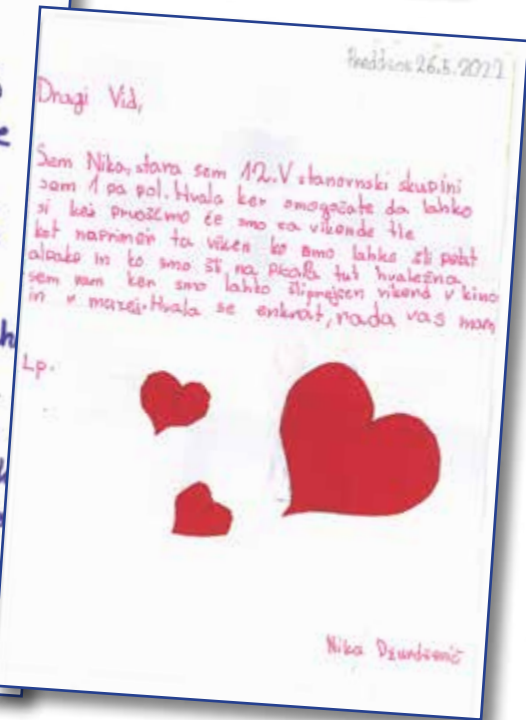 26.5.2022
Dragi Vid,
Sem Nika, stara sem 12. V stanovski skupini
sem 1 pa pol. Hvala ker omogočate da lahko
si kej privoščmo če smo za vikende tle
kot naprimer ta viken ko smo lahko šli pobit
alpake in ko smo šli na tut hvaležna
sem vam ker smo lahko šli prejšen vikend v kino
in v muzej. Hvala se enkrat, rada vas mam
Lp.
Nika